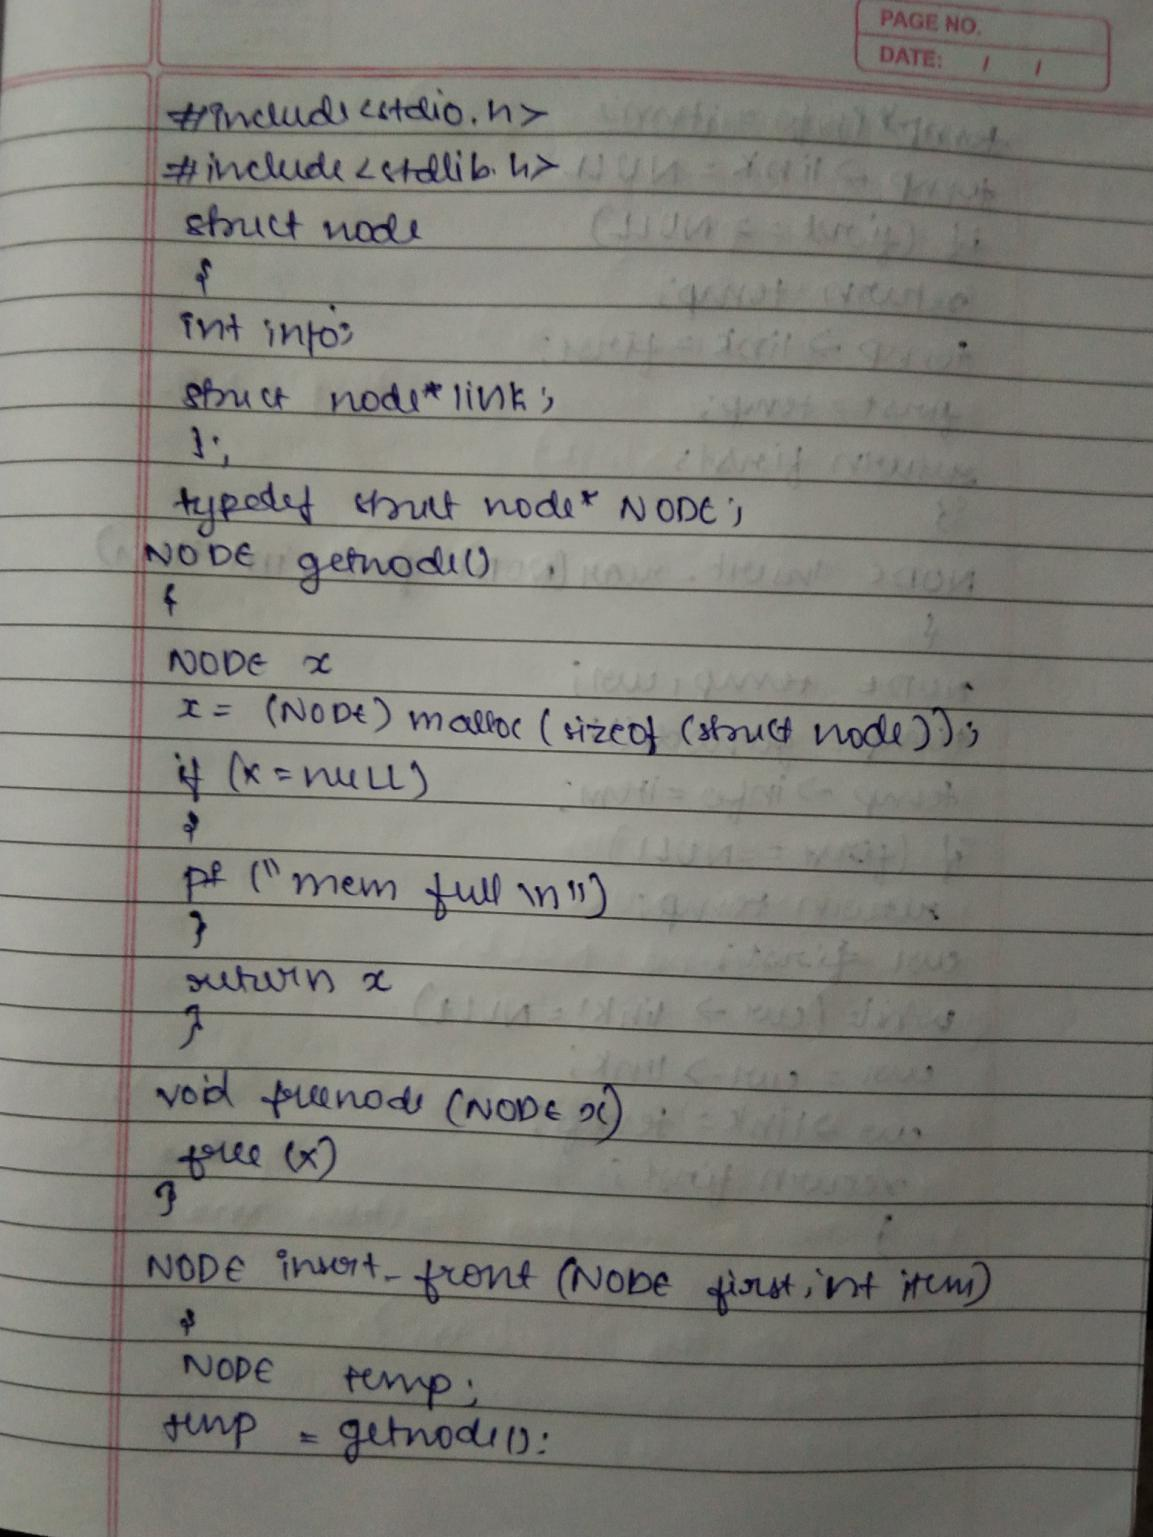 PAGE NO.
DATE: / /
#include<stdio.h>
#include<stdlib.h>
struct node
{
int info;
struct node* link;
};
typedef struct node* NODE;
NODE getnode()
{
NODE x
x = (NODE) malloc (sizeof (struct node));
if (x = NULL)
{
pf ("mem full \n")
}
return x
}
void freenode (NODE x)
free (x)
}
NODE insert_front (NODE first, int item)
{
NODE temp;
temp = getnode();